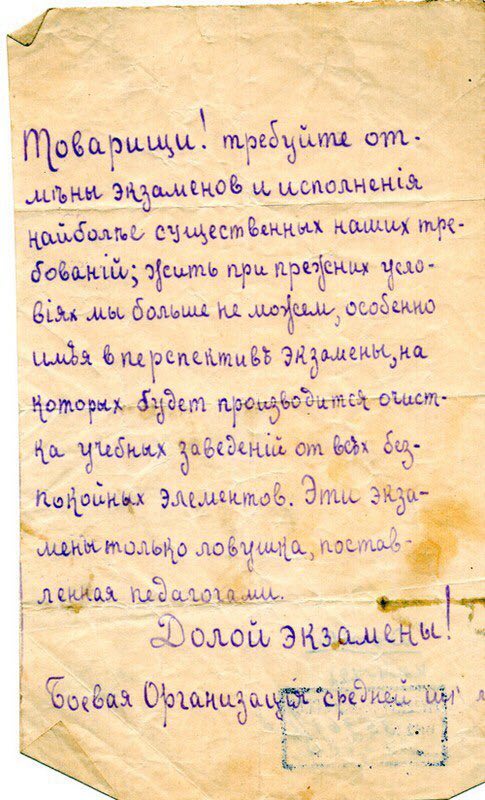 Товарищи! требуйте от-
мѣны экзаменовъ и исполненія
наиболѣе существенныхъ нашихъ тре-
бованій; жить при прежнихъ усло-
віях мы больше не можем, особенно
имѣя в перспективѣ экзамены, на
которых будет производится очист-
ка учебных заведеній от всѣх без-
покойных элементов. Эти экза-
мены только ловушка, постав-
ленная педагогами.
Долой экзамены!
Боевая Организація средней